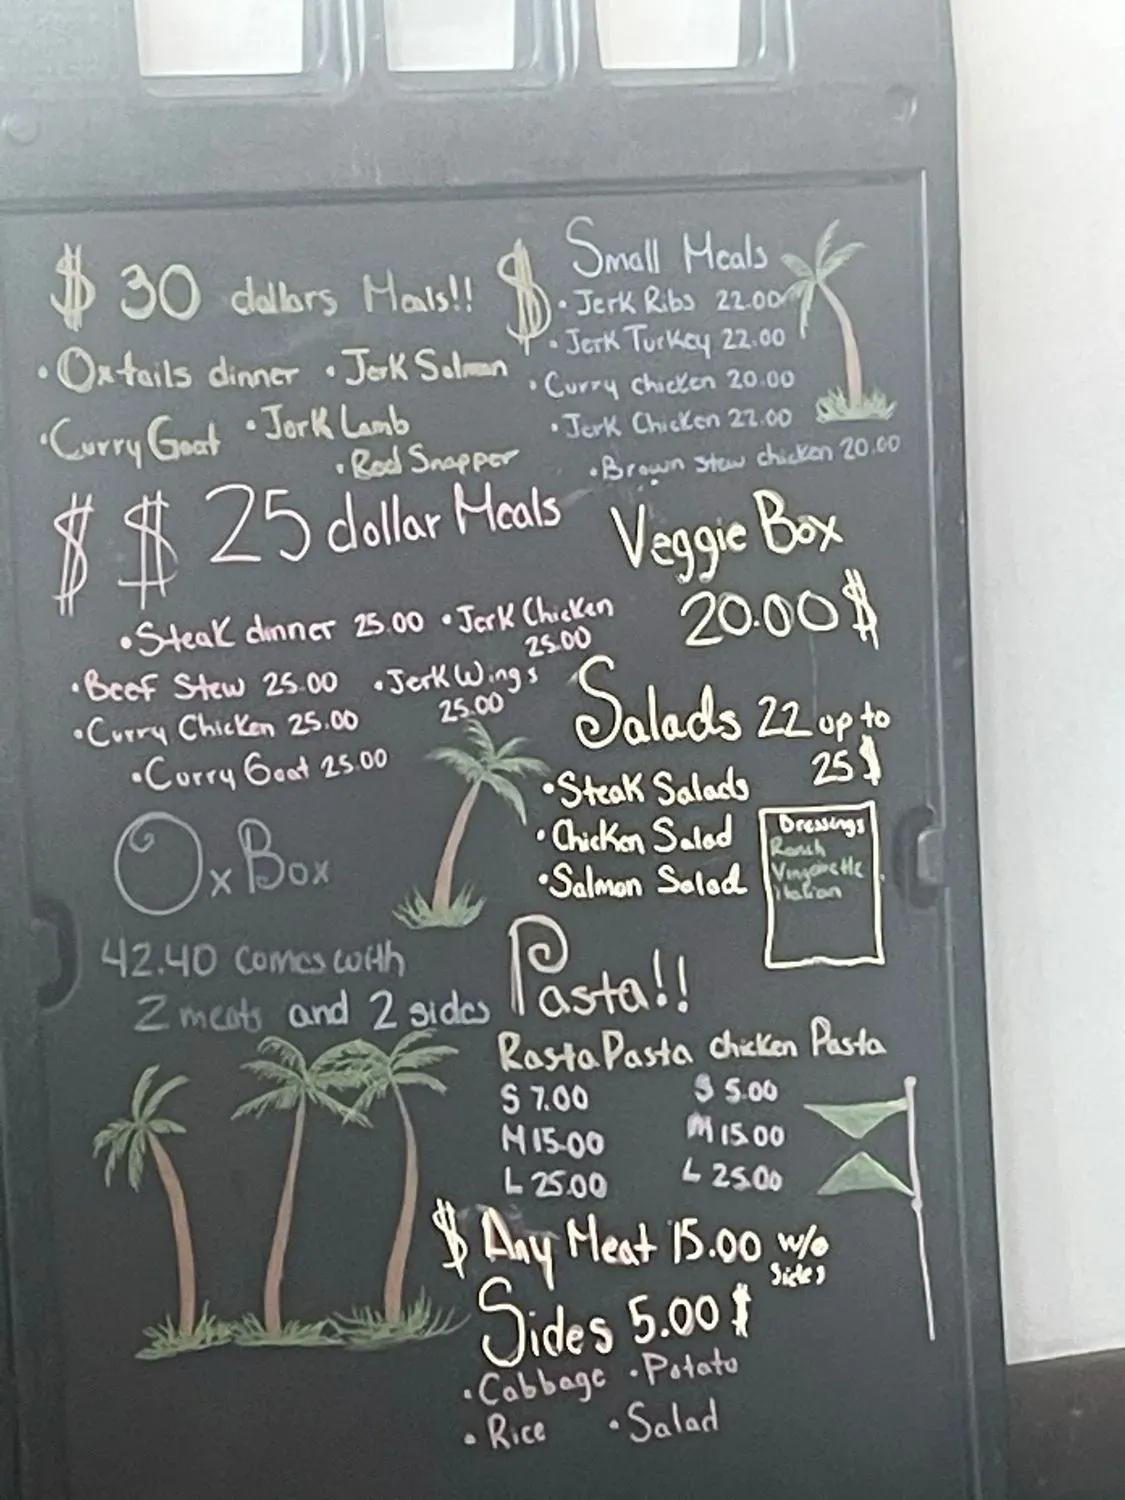 $ 30 dollars Meals!! $
• Oxtails dinner • Jerk Salmon
• Curry Goat • Jerk Lamb
• Red Snapper
Small Meals
• Jerk Ribs 22.00
• Jerk Turkey 22.00
• Curry chicken 20.00
• Jerk Chicken 22.00
• Brown stew chicken 20.00
$ $ 25 dollar Meals
• Steak dinner 25.00 • Jerk Chicken
25.00
• Beef Stew 25.00 • Jerk Wings
25.00
• Curry Chicken 25.00
• Curry Goat 25.00
Veggie Box
20.00 $
Salads 22 up to
25 $
• Steak Salads
• Chicken Salad
• Salmon Salad
Dressings
Ranch
Vingarette
italian
Ox Box
42.40 comes with
2 meats and 2 sides
Pasta!!
Rasta Pasta chicken Pasta
S 7.00 S 5.00
M 15.00 M 15.00
L 25.00 L 25.00
$ Any Meat 15.00 w/o
Sides
Sides 5.00 $
• Cabbage • Potato
• Rice • Salad